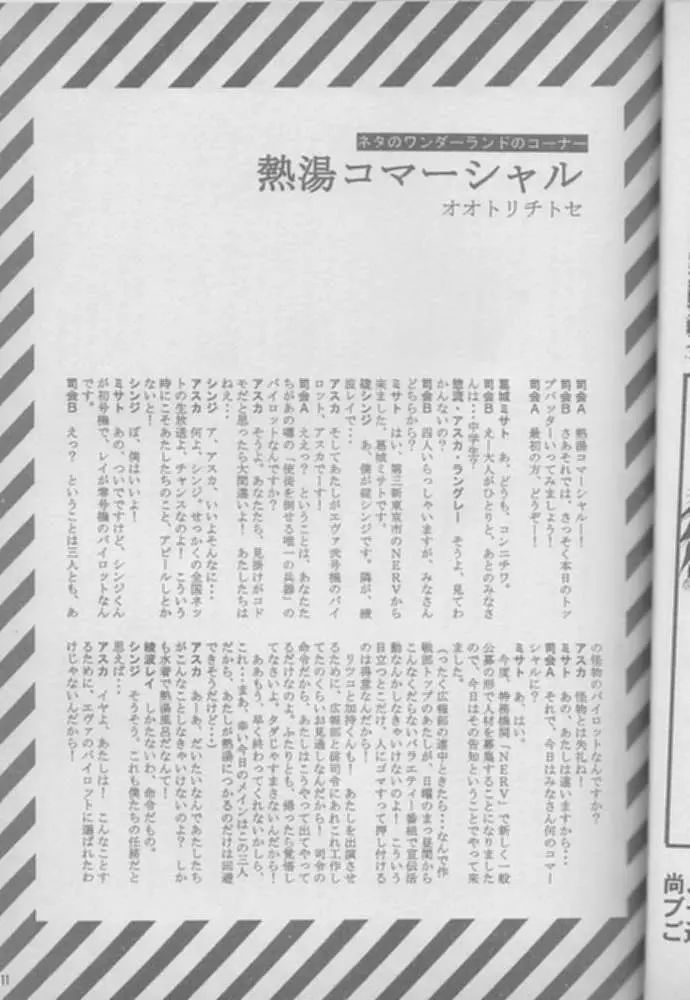 ネタのワンダーランドのコーナー
熱湯コマーシャル
オオトリチトセ
司会A　熱湯コマーシャル!!
司会B　さあそれでは、さっそく本日のトッ
プバッターいってみましょう!
司会A　最初の方、どうぞー!
葛城ミサト　あ、どうも、コンニチワ。
司会B　えー大人がひとりと、あとのみなさ
んは…中学生?
惣流・アスカ・ラングレー　そうよ、見てわ
かんないの?
司会B　四人いらっしゃいますが、みなさん
どちらから?
ミサト　はい、第三新東京市のNERVから
来ました、葛城ミサトです。
碇シンジ　あ、僕が碇シンジです。隣が、綾
波レイで…
アスカ　そしてあたしがエヴァ弐号機のパイ
ロット、アスカでーす!
司会A　えええ?　ということは、あなたた
ちがあの噂の「使徒を倒せる唯一の兵器」の
パイロットなんですか?
アスカ　そうよ。あなたたち、見掛けがコド
モだと思ったら大間違いよ!　あたしたちは
ねえ…
シンジ　ア、アスカ、いいよそんなに…
アスカ　何よ、シンジ。せっかくの全国ネッ
トの生放送よ、チャンスなのよ!　こういう
時にこそあたしたちのこと、アピールしとか
ないと!
シンジ　ぼ、僕はいいよ!
ミサト　あの、ついでですけど、シンジくん
が初号機で、レイが零号機のパイロットなん
です。
司会B　えっ?　ということは三人とも、あ
の怪物のパイロットなんですか?
アスカ　怪物とは失礼ね!
ミサト　あの、あたしは違いますから…
司会A　それで、今日はみなさん何のコマー
シャルに?
ミサト　あ、はい。
今度、特務機関「NERV」で新しく一般
公募の形で人材を募集することになりました
ので、今日はその告知ということでやって来
ました。
(ったく広報部の連中ときたら…なんで作
戦部トップのあたしが、日曜のまっ昼間から
こんなくだらないバラエティー番組で宣伝活
動なんかしなきゃいけないのよ!　こういう
目立つとこだけ、人にゴマすって押し付ける
のは得意なんだから!
リツコも加持くんも!　あたしを出演させ
るために、広報部と碇司令にあれこれ工作し
てたのくらいお見通しなんだから!　司令の
命令だから、あたしはこうやって出てやって
るだけなのよ。ふたりとも、帰ったら覚悟し
てなさいよ。タダじゃすまさないんだから!
ああもう、早く終わってくれないかしら、
これ…まぁ、幸い今日のメインはこの三人
だから、あたしが熱湯につかるのだけは回避
できそうだけど…)
アスカ　あーあ、だいたいなんであたしたち
がこんなことしなきゃいけないのよ?　しか
も水着で熱湯風呂だなんて!
綾波レイ　しかたないわ、命令だもの。
シンジ　そうそう。これも僕たちの任務だと
思えば…
アスカ　イヤよ、あたしは!　こんなことす
るために、エヴァのパイロットに選ばれたわ
けじゃないんだから!
11